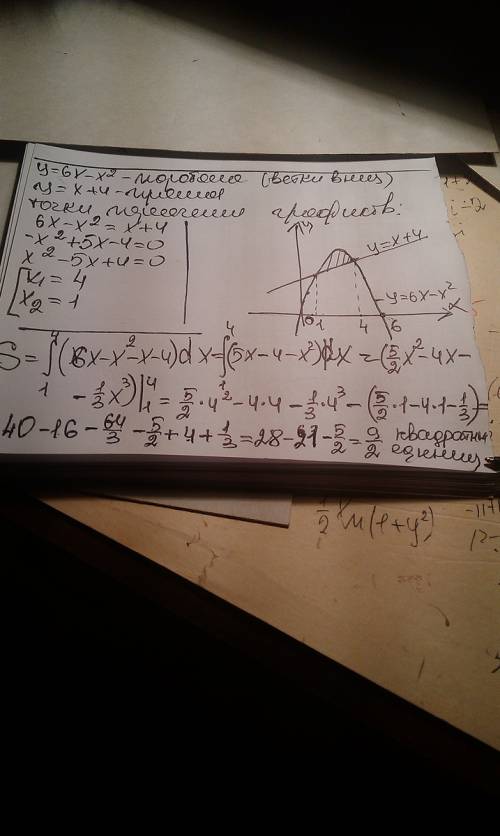 y=6x-x² - парабола (ветки вниз)
y=x+4 - прямая
точки пересечения графиков:
6x-x²=x+4
-x²+5x-4=0
x²-5x+4=0
x₁=4
x₂=1
y
y=x+4
y=6x-x²
x
0 1 4 6
S=∫₁⁴(6x-x²-x-4)dx=∫₁⁴(5x-4-x²)dx=(5/2x²-4x-
-1/3x³)|₁⁴=5/2·4²-4·4-1/3·4³-(5/2·1-4·1-1/3)=
40-16-64/3-5/2+4+1/3=28-21-5/2=9/2 квадратных
единиц
1/2 ln(1+y²)